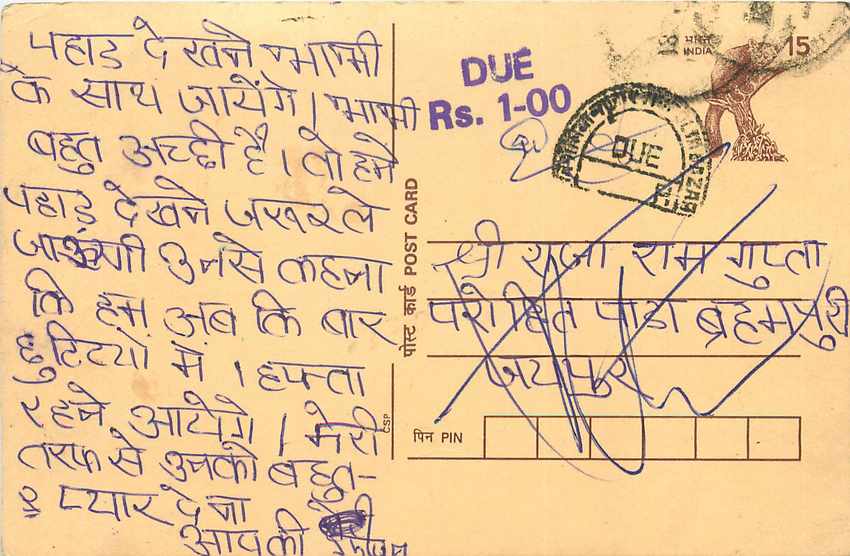 पहाड देखने भाभी
के साथ जायेंगे। भाभी
बहुत अच्छी है। तो हमे
पहाड़ देखने जरूर ले
जाऊंगी उनसे कहना
कि हम अब कि बार
छुटिटयों में । हफ्ता
रहने आयेगे । मेरी
तरफ से उनको बहुत-
प्यार देना
आपकी
पोस्ट कार्ड POST CARD
CSP
DUE
Rs. 1-00
DUE
भारत
INDIA
15
श्री राजा राम गुप्ता
परोहित पाडा ब्रहमपुरी
जयपुर
पिन PIN